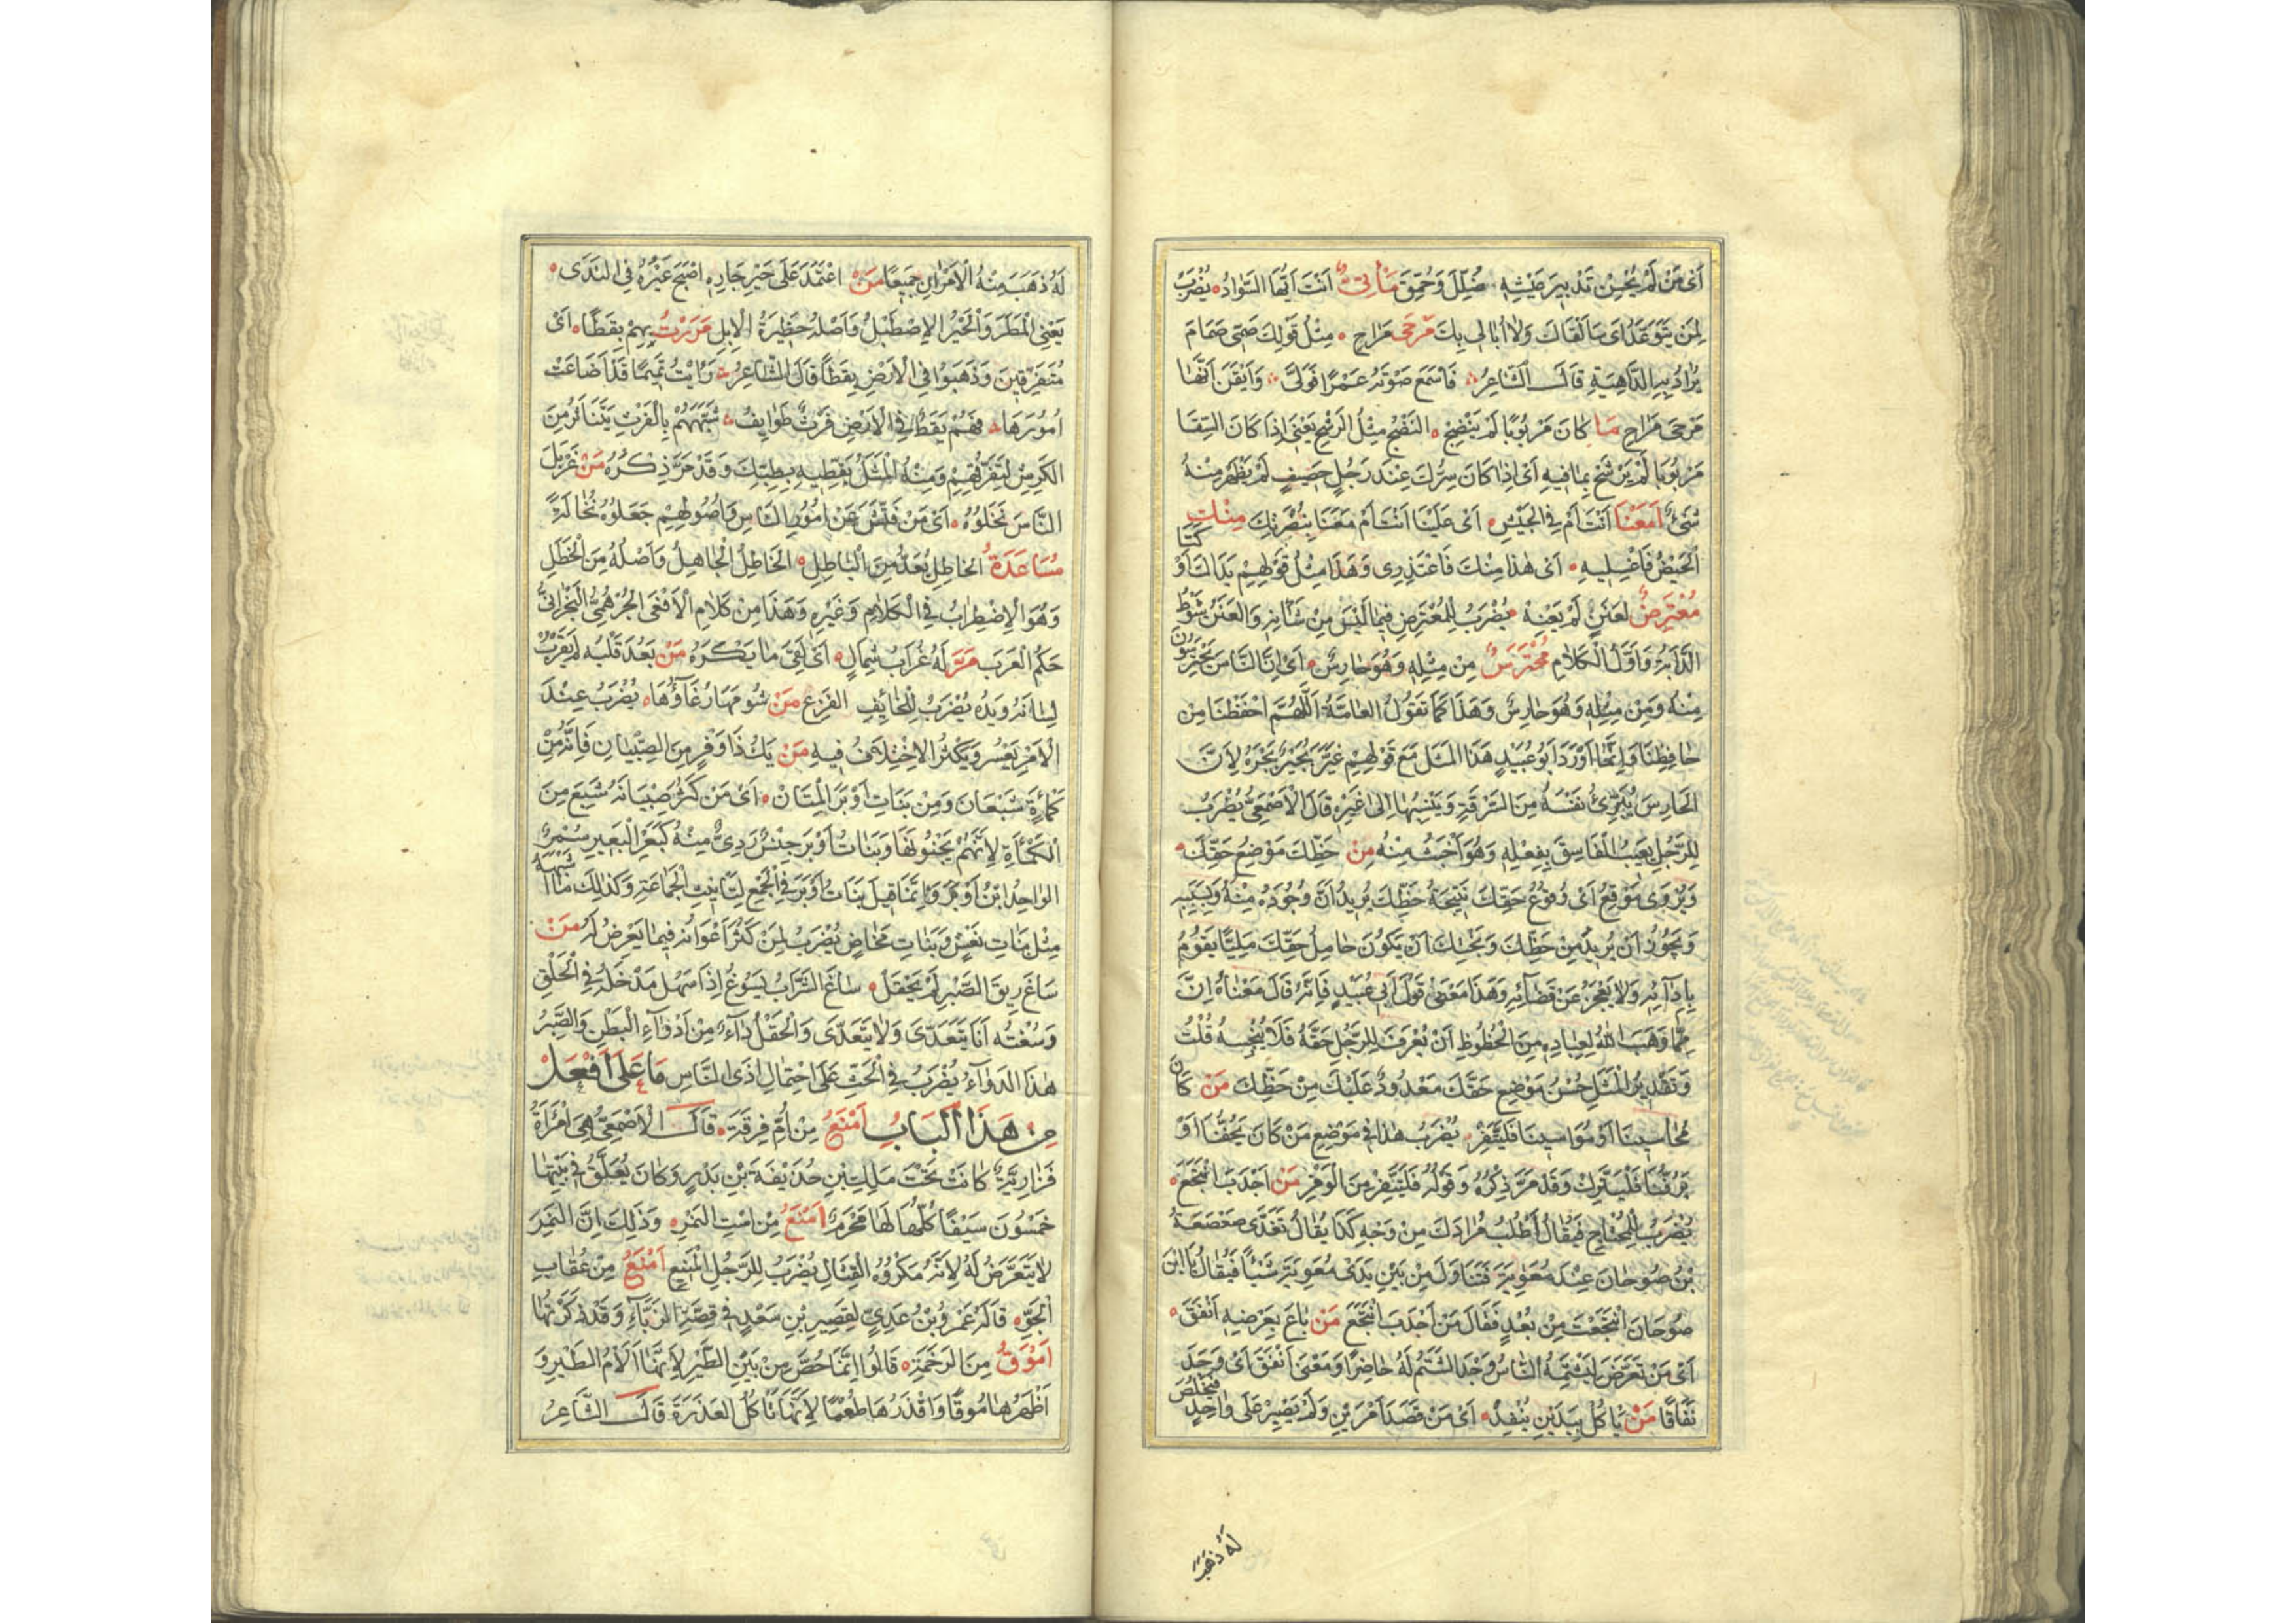 اَىْ مَنْ لَمْ يُحْسِنْ تَدْبِيرَ عَيْشِهِ ضُلِّلَ وَحُمِّقَ مَأْتِىٌّ اَنْتَ اَيُّهَا السَّوَادُ يُضْرَبُ
لِمَنْ يَتَوَعَّدُ اَىْ سَاَلْقَاكَ وَلَا اُبَالِى بِكَ مَرْحَى مَرَاحِ مِثْلُ قَوْلِكَ صَمِّى صَمَامَ
يُرَادُ بِهِ الدَّاهِيَةُ قَالَ الشَّاعِرُ فَاَسْمَعَ صَوْتُهُ عَمْرًا فَوَلَّى وَاَيْقَنَ اَنَّهَا
مَرْحَى مَرَاحِ مَا كَانَ مَرْبُوبًا لَمْ يَنْضِحْ النَّضْحُ مِثْلُ الرَّشْحِ يَعْنِى اِذَا كَانَ السِّقَا
مَرْبُوبًا لَمْ يَرْشَحْ بِمَا فِيهِ اَىْ اِذَا كَانَ سِرُّكَ عِنْدَ رَجُلٍ حَصِيفٍ لَمْ يَظْهَرْ مِنْهُ
شَىْءٌ اَمَعَنَا اَنْتَ اَمْ فِى الْجَيْشِ اَىْ عَلَيْنَا اَنْتَ اَمْ مَعَنَا بِنُصْرَتِكَ مِنْكِ
الْحَيْضُ فَاغْسِلِيهِ اَىْ هٰذَا مِنْكَ فَاعْتَذِرِى وَهَذَا مِثْلُ قَوْلِهِمْ يَدَاكَ اَوْكَتَا
مُعْتَرِضٌ لِعَنَنٍ لَمْ يَعْنِهْ يُضْرَبُ لِلْمُعْتَرِضِ فِيمَا لَيْسَ مِنْ شَانِهِ وَالْعَنَنُ شَوْطُ
الدَّابَّةِ وَاَوَّلُ الْكَلَامِ مُحْتَرَسٌ مِنْ مِثْلِهِ وَهُوَ حَارِسٌ اَىْ اِنَّ النَّاسَ يَحْتَرِسُونَ
مِنْهُ وَمِنْ مِثْلِهِ وَهُوَ حَارِسٌ وَهَذَا كَمَا تَقُولُ الْعَامَّةُ اَللّٰهُمَّ احْفَظْنَا مِنْ
حَافِظِنَا وَاِنَّمَا اَوْرَدَ اَبُو عُبَيْدٍ هَذَا الْمَثَلَ مَعَ قَوْلِهِمْ عَيَّرَ بُجَيْرٌ بُجَرَهْ لِاَنَّ
الْحَارِسَ يُبَرِّئُ نَفْسَهُ مِنَ السَّرِقَةِ وَيَنْسِبُهَا اِلَى غَيْرِهِ قَالَ الْاَصْمَعِىُّ يُضْرَبُ
لِلرَّجُلِ يَعِيبُ الْفَاسِقَ بِفِعْلِهِ وَهُوَ اَخْبَثُ مِنْهُ مِنْ حَظِّكَ مَوْضِعُ حَقِّكَ
وَيُرْوَى مَوْقِعُ اَىْ وُقُوعُ حَقِّكَ نَتِيجَةُ حَظِّكَ يُرِيدُ اَنَّ وُجُودَهُ مِنْهُ وَبِسَبَبِهِ
وَيَجُوزُ اَنْ يُرِيدَ مِنْ حَظِّكَ وَبَخْتِكَ اَنْ يَكُونَ حَامِلُ حَقِّكَ مَلِيًّا يَقُومُ
بِاَدَآئِهِ وَلَا يَعْجِزُ عَنْ قَضَآئِهِ وَهَذَا مَعْنَى قَوْلِ اَبِى عُبَيْدٍ فَاِنَّهُ قَالَ مَعْنَاهُ اِنَّ
مِمَّا وَهَبَ اللهُ لِعِبَادِهِ مِنَ الْحُظُوظِ اَنْ يُعْرَفَ لِلرَّجُلِ حَقُّهُ فَلَا يُبْخَسُهُ قُلْتُ
وَتَقْدِيرُ الْمَثَلِ حُسْنُ مَوْضِعِ حَقِّكَ مَعْدُودٌ عَلَيْكَ مِنْ حَظِّكَ مَنْ كَانَ
مُحَاسِينَا اَوْ مُوَاسِينَا فَلْيَتَّفِرْ يُضْرَبُ هٰذَا فِى مَوْضِعِ مَنْ كَانَ يَحُفُّنَا اَوْ
يَرُفُّنَا فَلْيَتَّرِكْ وَقَدْ مَرَّ ذِكْرُهُ وَقَوْلُهُ فَلْيَتَّفِرْ مِنَ الْوَفْرِ مَنْ اَجْدَبَ انْتَجَعَ
يُضْرَبُ لِلْمُحْتَاجِ فَيُقَالُ اُطْلُبْ مُرَادَكَ مِنْ وَجْهِ كَذَا يُقَالُ تَغَدَّى صَعْصَعَةُ
بْنُ صُوحَانَ عِنْدَ مُعَوِيَةَ فَتَنَاوَلَ مِنْ بَيْنِ يَدَىْ مُعَوِيَةَ شَيْئًا فَقَالَ يَا ابْنَ
صُوحَانَ انْتَجَعْتَ مِنْ بُعْدٍ فَقَالَ مَنْ اَجْدَبَ انْتَجَعَ مَنْ بَاعَ بِعِرْضِهِ اَنْفَقَ
اَىْ مَنْ تَعَرَّضَ لِيَشْتِمَهُ النَّاسُ وَجَدَ الشَّتْمَ لَهُ حَاضِرًا وَمَعْنَى اَنْفَقَ اَىْ وَجَدَ
نَفَاقًا مَنْ يَأْكُلْ بِيَدَيْنِ يَنْفَدْ اَىْ مَنْ قَصَدَ اَمْرَيْنِ وَلَمْ يَصْبِرْ عَلَى وَاحِدٍ فَيَخْلُصَ
لَهُ ذَهَبَ
لَهُ ذَهَبَ مِنْهُ الْاَمْرَانِ جَمِيعًا مَنْ اعْتَمَدَ عَلَى حَيْرِ جَارِهِ اَصْبَحَ عَيْرُهُ فِى النَّدَى
يَعْنِى الْمَطَرَ وَالْحَيْرُ الْاِصْطَبْلُ وَاَصْلُهُ حَظِيرَةُ الْاِبِلِ مَرَرْتُ بِهِمْ بَقَطًا اَىْ
مُتَفَرِّقِينَ وَذَهَبُوا فِى الْاَرْضِ بَقَطًا قَالَ الشَّاعِرُ رَاَيْتُ تَمِيمًا قَدْ اَضَاعَتْ
اُمُورَهَا فَهُمْ بَقَطٌ فِى الْاَرْضِ فَرْثٌ طَوَايِفُ شَبَّهَهُمْ بِالْفَرْثِ يَتَنَاثَرُ مِنَ
الْكَرِشِ لِتَفَرُّقِهِمْ وَمِنْهُ الْمَثَلُ بَقِّطِيهِ بِطِبِّكِ وَقَدْ مَرَّ ذِكْرُهُ مَنْ غَرْبَلَ
النَّاسَ نَخَلُوهُ اَىْ مَنْ فَتَّشَ عَنْ اُمُورِ النَّاسِ وَاُصُولِهِمْ جَعَلُوهُ نُخَالَةً
مُسَاعَدَةُ الْخَاطِلِ يُعَدُّ مِنَ الْبَاطِلِ الْخَاطِلُ الْجَاهِلُ وَاَصْلُهُ مِنَ الْخَطَلِ
وَهُوَ الْاِضْطِرَابُ فِى الْكَلَامِ وَغَيْرِهِ وَهَذَا مِنْ كَلَامِ الْاَفْعَى الْجُرْهُمِىِّ النَّجْرَانِىِّ
حَكَمِ الْعَرَبِ مَرَّ لَهُ غُرَابُ شِمَالٍ اَىْ لَقِىَ مَا يَكْرَهُ مَنْ بَعُدَ قَلْبُهُ لَمْ يَقْرُبْ
لِسَانُهُ وَيَدُهُ يُضْرَبُ لِلْخَائِفِ الْفَزِعِ مَنْ شُومِهَا رُغَآؤُهَا يُضْرَبُ عِنْدَ
الْاَمْرِ يَعْسُرُ وَيَكْثُرُ الْاِخْتِلَافُ فِيهِ مَنْ يَكُ ذَا وَفْرٍ مِنَ الصِّبْيَانِ فَاِنَّهُ مِنْ
كَمْاَةٍ شَبْعَانَ وَمِنْ بَنَاتِ اَوْبَرَ الْمِتَانْ اَىْ مَنْ كَثُرَ صِبْيَانُهُ شَبِعَ مِنَ
الْكَمْاَةِ لِاَنَّهُمْ يَجْنُونَهَا وَبَنَاتُ اَوْبَرَ جِنْسٌ رَدِىٌّ مِنْهُ كَبَعْرِ الْبَعِيرِ
الْوَاحِدُ ابْنُ اَوْبَرَ وَاِنَّمَا قِيلَ بَنَاتُ اَوْبَرَ فِى الْجَمْعِ لِتَانِيثِ الْجَمَاعَةِ وَكَذلِكَ مَا اَشْبَهَهُ
مِثْلُ بَنَاتِ نَعْشٍ وَبَنَاتِ مَخَاضٍ يُضْرَبُ لِمَنْ كَثُرَ اَعْوَانُهُ فِيمَا يَعْرِضُ لَهُ مَنْ
سَاغَ رِيقَ الصَّبْرِ لَمْ يَحْقَلْ سَاغَ الشَّرَابُ يَسُوغُ اِذَا سَهُلَ مَدْخَلُهُ فِى الْحَلْقِ
وَسُغْتُهُ اَنَا يَتَعَدَّى وَلَا يَتَعَدَّى وَالْحَقْلُ دَاءٌ مِنْ اَدْوَاءِ الْبَطْنِ وَالصَّبْرُ
هٰذَا الدَّوَاءُ يُضْرَبُ فِى الْحَثِّ عَلَى احْتِمَالِ اَذَى النَّاسِ مَا عَلَى اَفْعَلْ
مِنْ هَذَا الْبَابِ اَمْنَعُ مِنْ اُمِّ قِرْفَةَ قَالَ الْاَصْمَعِىُّ هِىَ امْرَاَةٌ
فَزَارِيَّةٌ كَانَتْ تَحْتَ مَلِكِ بْنِ حُذَيْفَةَ بْنِ بَدْرٍ وَكَانَ يُعَلَّقُ فِى بَيْتِهَا
خَمْسُونَ سَيْفًا كُلُّهَا لَهَا مَحْرَمٌ اَمْنَعُ مِنْ اسْتِ النَّمِرِ وَذٰلِكَ اِنَّ النَّمِرَ
لَا يُتَعَرَّضُ لَهُ لِاَنَّهُ مَكْرُوهُ الْقِتَالِ يُضْرَبُ لِلرَّجُلِ الْمَنِيعِ اَمْنَعُ مِنْ عُقَابِ
الْجَوِّ قَالَهُ عَمْرُو بْنُ عَدِىٍّ لِقَصِيرِ بْنِ سَعْدٍ فِى قِصَّةِ الزَّبَّاءِ وَقَدْ ذَكَرْتُهَا
اَمْوَقُ مِنَ الرَّخَمَةِ قَالُوا اِنَّمَا خُصَّ مِنْ بَيْنِ الطَّيْرِ لِاَنَّهَا اَلْاَمُ الطَّيْرِ وَ
اَظْهَرُهَا مُوقًا وَاَقْذَرُهَا طُعْمًا لِاَنَّهَا تَاْكُلُ الْعَذِرَةَ قَالَ الشَّاعِرُ